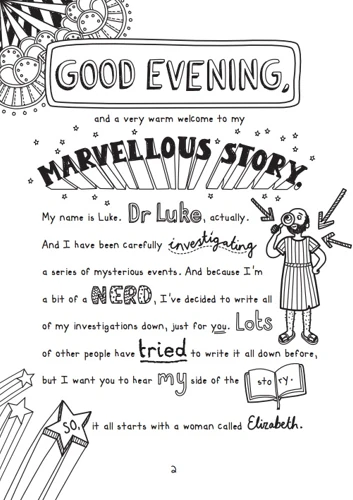 GOOD EVENING,
and a very warm welcome to my
MARVELLOUS STORY.
My name is Luke. Dr Luke, actually.
And I have been carefully investigating
a series of mysterious events. And because I'm
a bit of a NERD, I've decided to write all
of my investigations down, just for you. Lots
of other people have tried to write it all down before,
but I want you to hear my side of the story.
So, it all starts with a woman called Elizabeth.
2